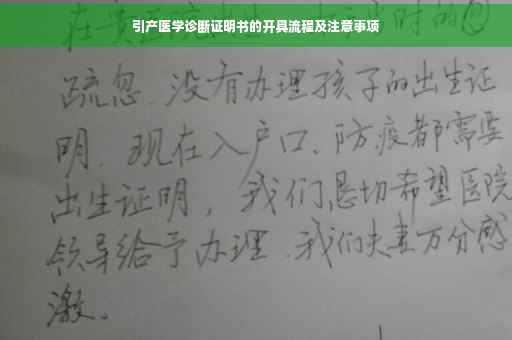 引产医学诊断证明书的开具流程及注意事项
疏忽、没有办理孩子的出生证
明、现在入户口、防疫都需要
出生证明，我们恳切希望医院
领导给予办理、我们夫妻万分感
激。